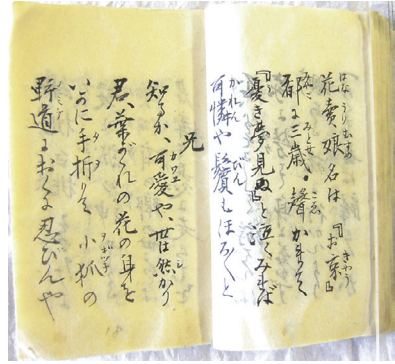 花賣娘名は『お京』
都に三歳。聲かれて
『憂き夢見ぬ』と泣くみれば
可憐や鬢もほろ〱と
兄
知るか、可愛や、世は然かり
君、葉がくれの花の身を
いかに手折りそ 小狐の
野道におくる忍びんや